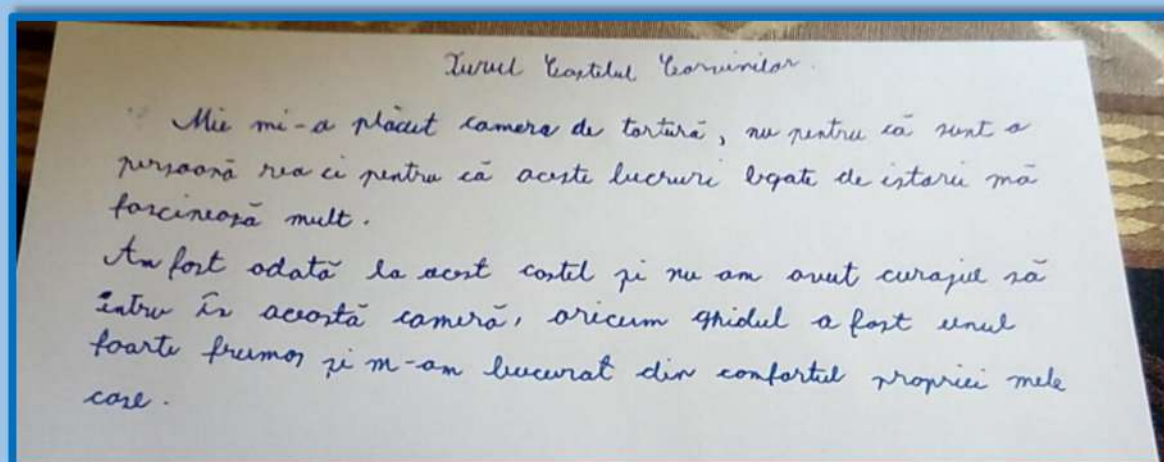 Turul Castelul Corvinilor
Mie mi-a plăcut camera de tortură, nu pentru că sunt o
persoană rea ci pentru că aceste lucruri legate de istorii mă
fascinează mult.
Am fost odată la acest castel și nu am avut curajul să
intru în această cameră, oricum ghidul a fost unul
foarte frumos și m-am bucurat din confortul propriei mele
case.